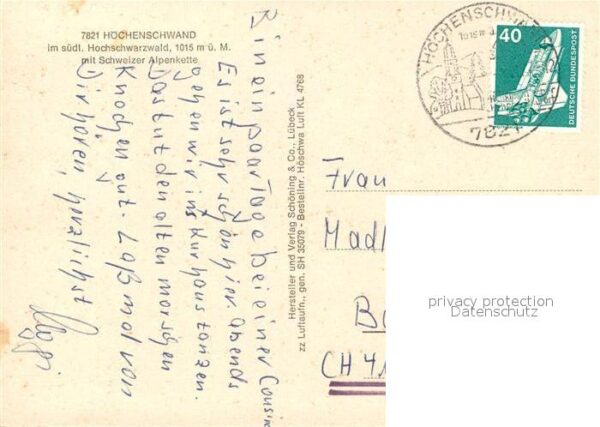 7821 HÖCHENSCHWAND
im südl. Hochschwarzwald, 1015 m ü. M.
mit Schweizer Alpenkette
Bin ein paar Tage bei einer Cousine
Es ist sehr schön hier abends
gehen wir ins Kurhaus tanzen.
Das tut den alten morschen
Knochen gut. Laß mal von
Dir hören, herzlichst
Hersteller und Verlag Schöning & Co., Lübeck
zz Luftaufn., gen. SH 35079 - Bestellnr. Höschwa Luft KL 4768
HÖCHENSCHWAND
7821
40
DEUTSCHE BUNDESPOST
Frau
Madl
Ba
CH 41
privacy protection
Datenschutz